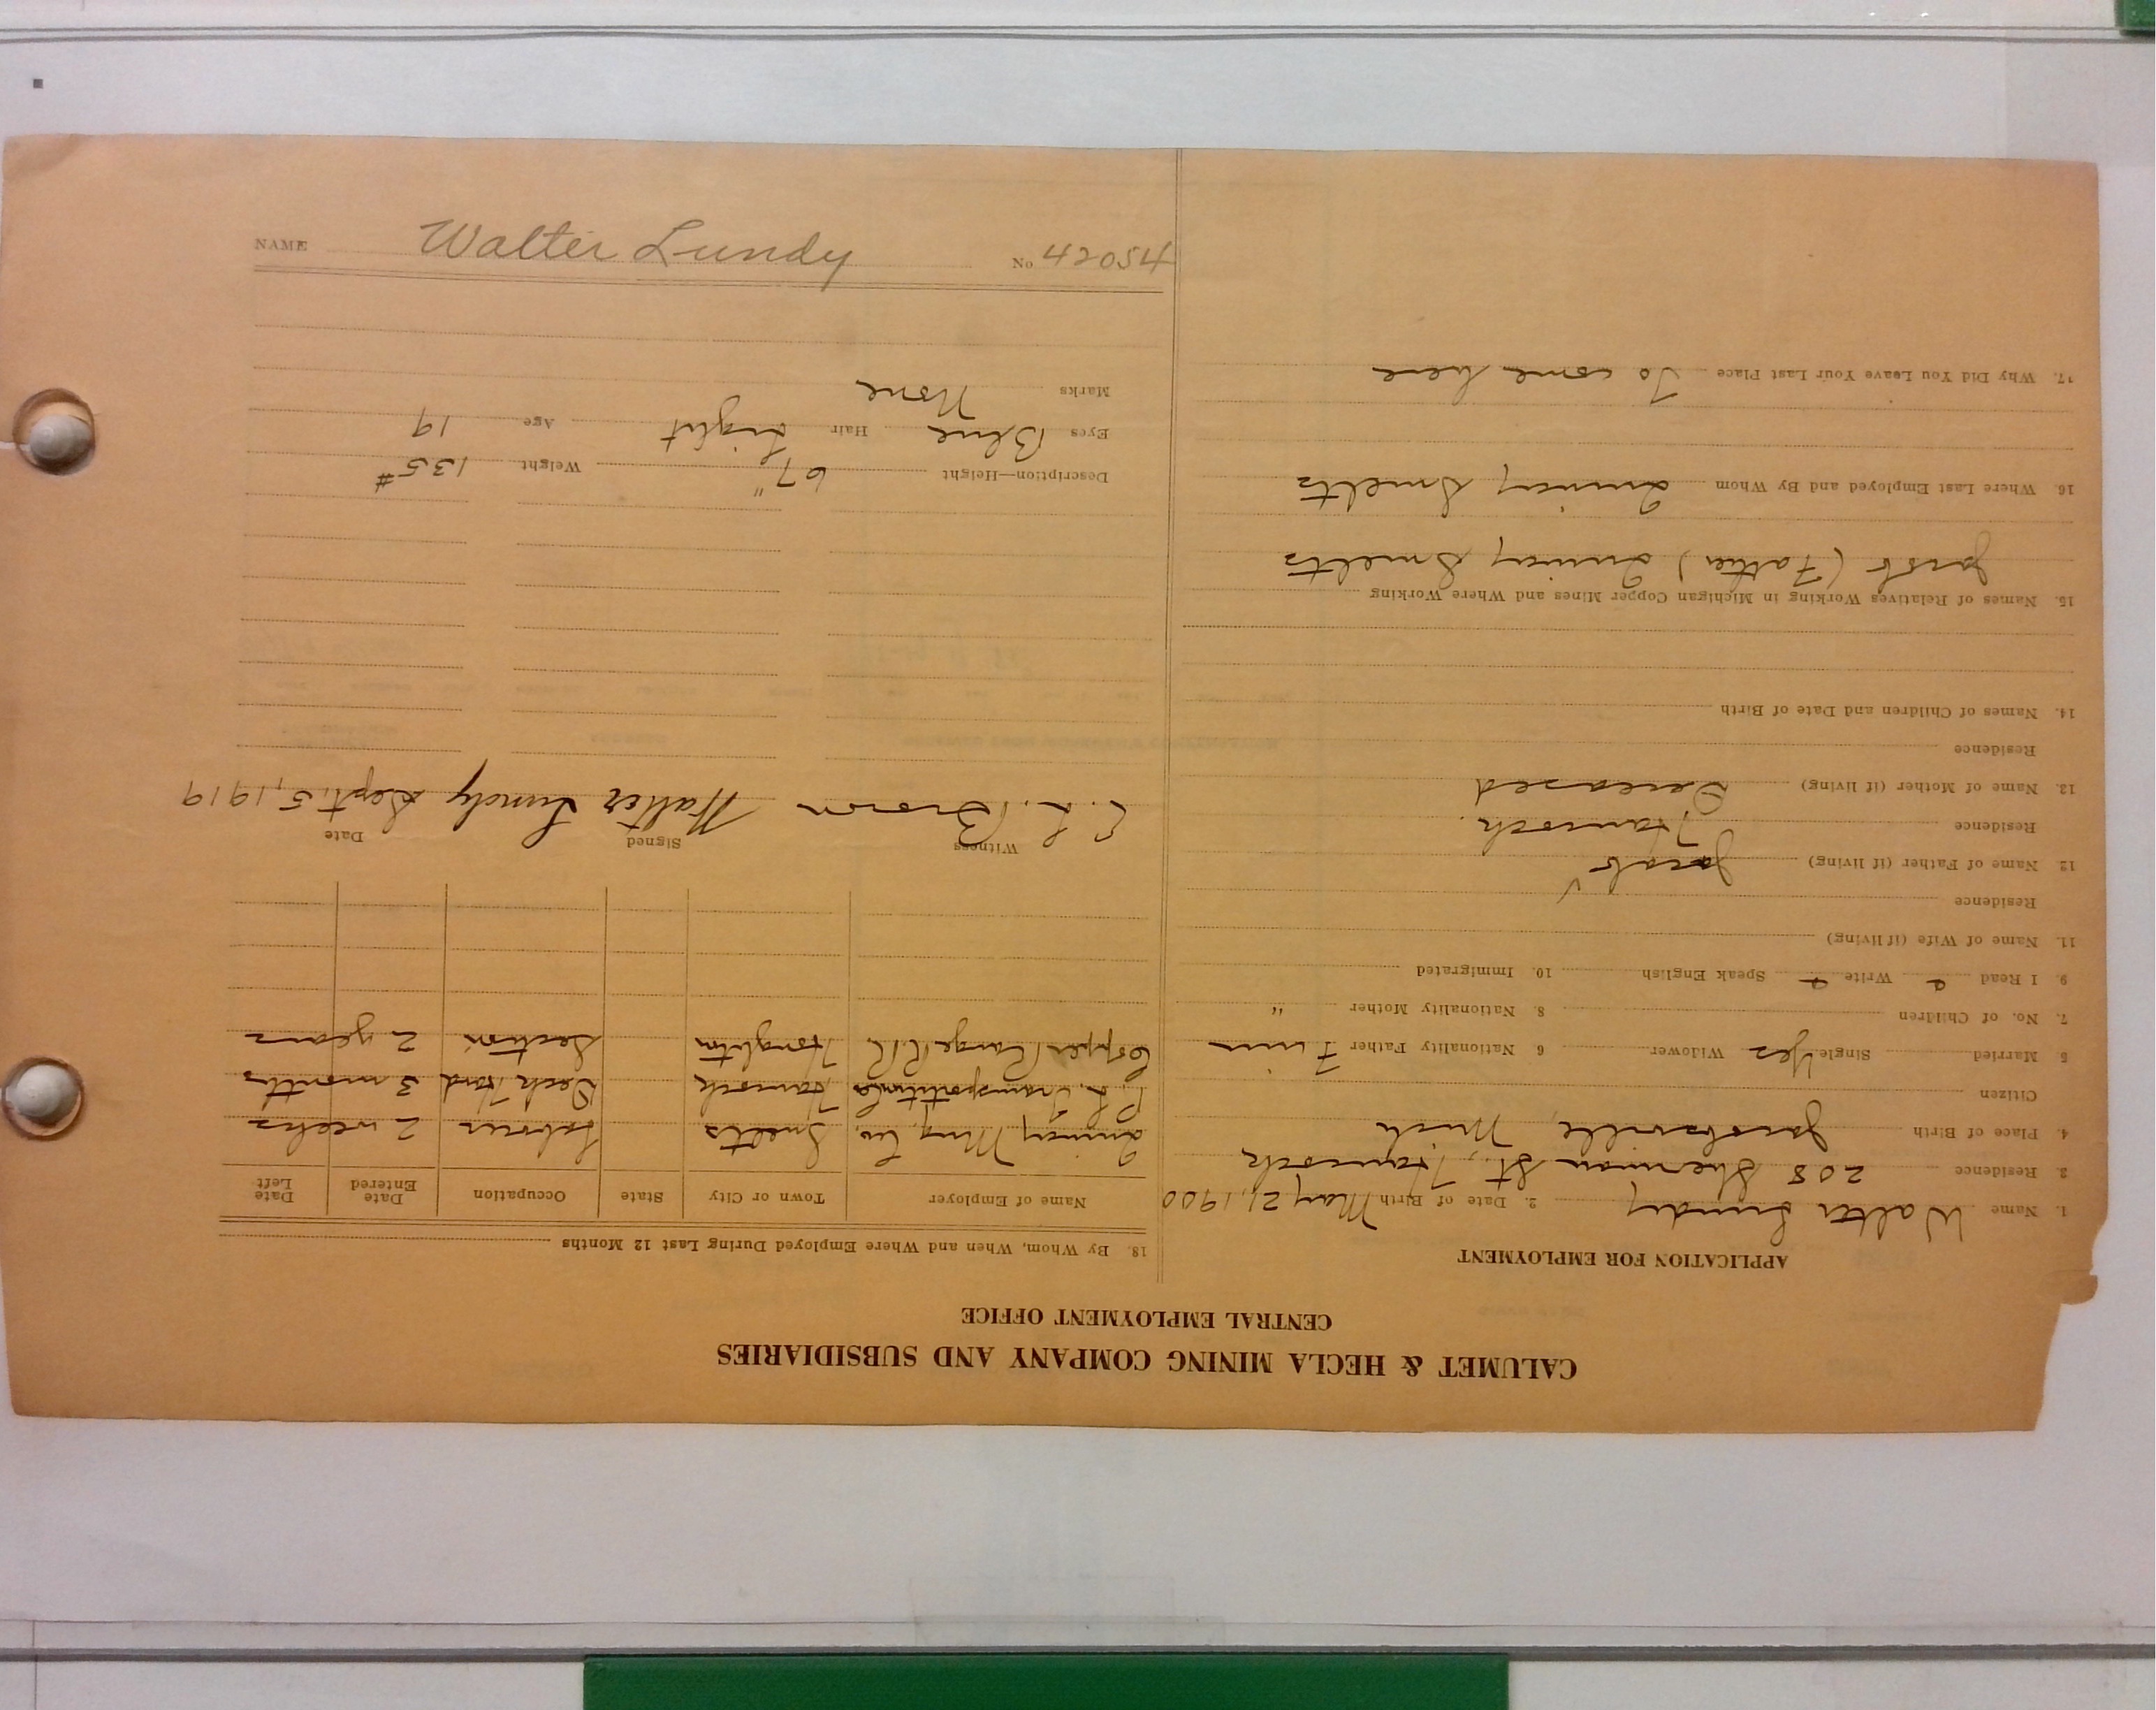 CALUMET & HECLA MINING COMPANY AND SUBSIDIARIES
CENTRAL EMPLOYMENT OFFICE
APPLICATION FOR EMPLOYMENT
1. Name Walter Lundy 2. Date of Birth May 21, 1900
3. Residence 208 Sherman St., Hancock
4. Place of Birth Jacobsville, Mich
Citizen
5. Married Single Yes Widower 6 Nationality Father Finn
7. No. of Children 8. Nationality Mother "
9. I Read Write Speak English 10. Immigrated
11. Name of Wife (if living)
Residence
12 Name of Father (if living) Jacob
Residence Hancock.
13. Name of Mother (if living) Deceased
Residence
14. Names of Children and Date of Birth
15. Names of Relatives Working in Michigan Copper Mines and Where Working
Jacob (Father) Quincy Smelts
16. Where Last Employed and By Whom Quincy Smelts
17. Why Did You Leave Your Last Place To come here
18. By Whom, When and Where Employed During Last 12 Months
Name of Employer Town or City State Occupation Date Entered Date Left
Quincy Mng. Co. Smelts Laborer 2 weeks
P. L. Transportation Co Hancock Deck Hand 3 months
Copper Range R/R Houghton Section 2 years
Witness Signed Date
C. L. Brown Walter Lundy Sept. 5, 1919
Description—Height 67" Weight 135#
Eyes Blue Hair Light Age 19
Marks None
NAME Walter Lundy No 42054